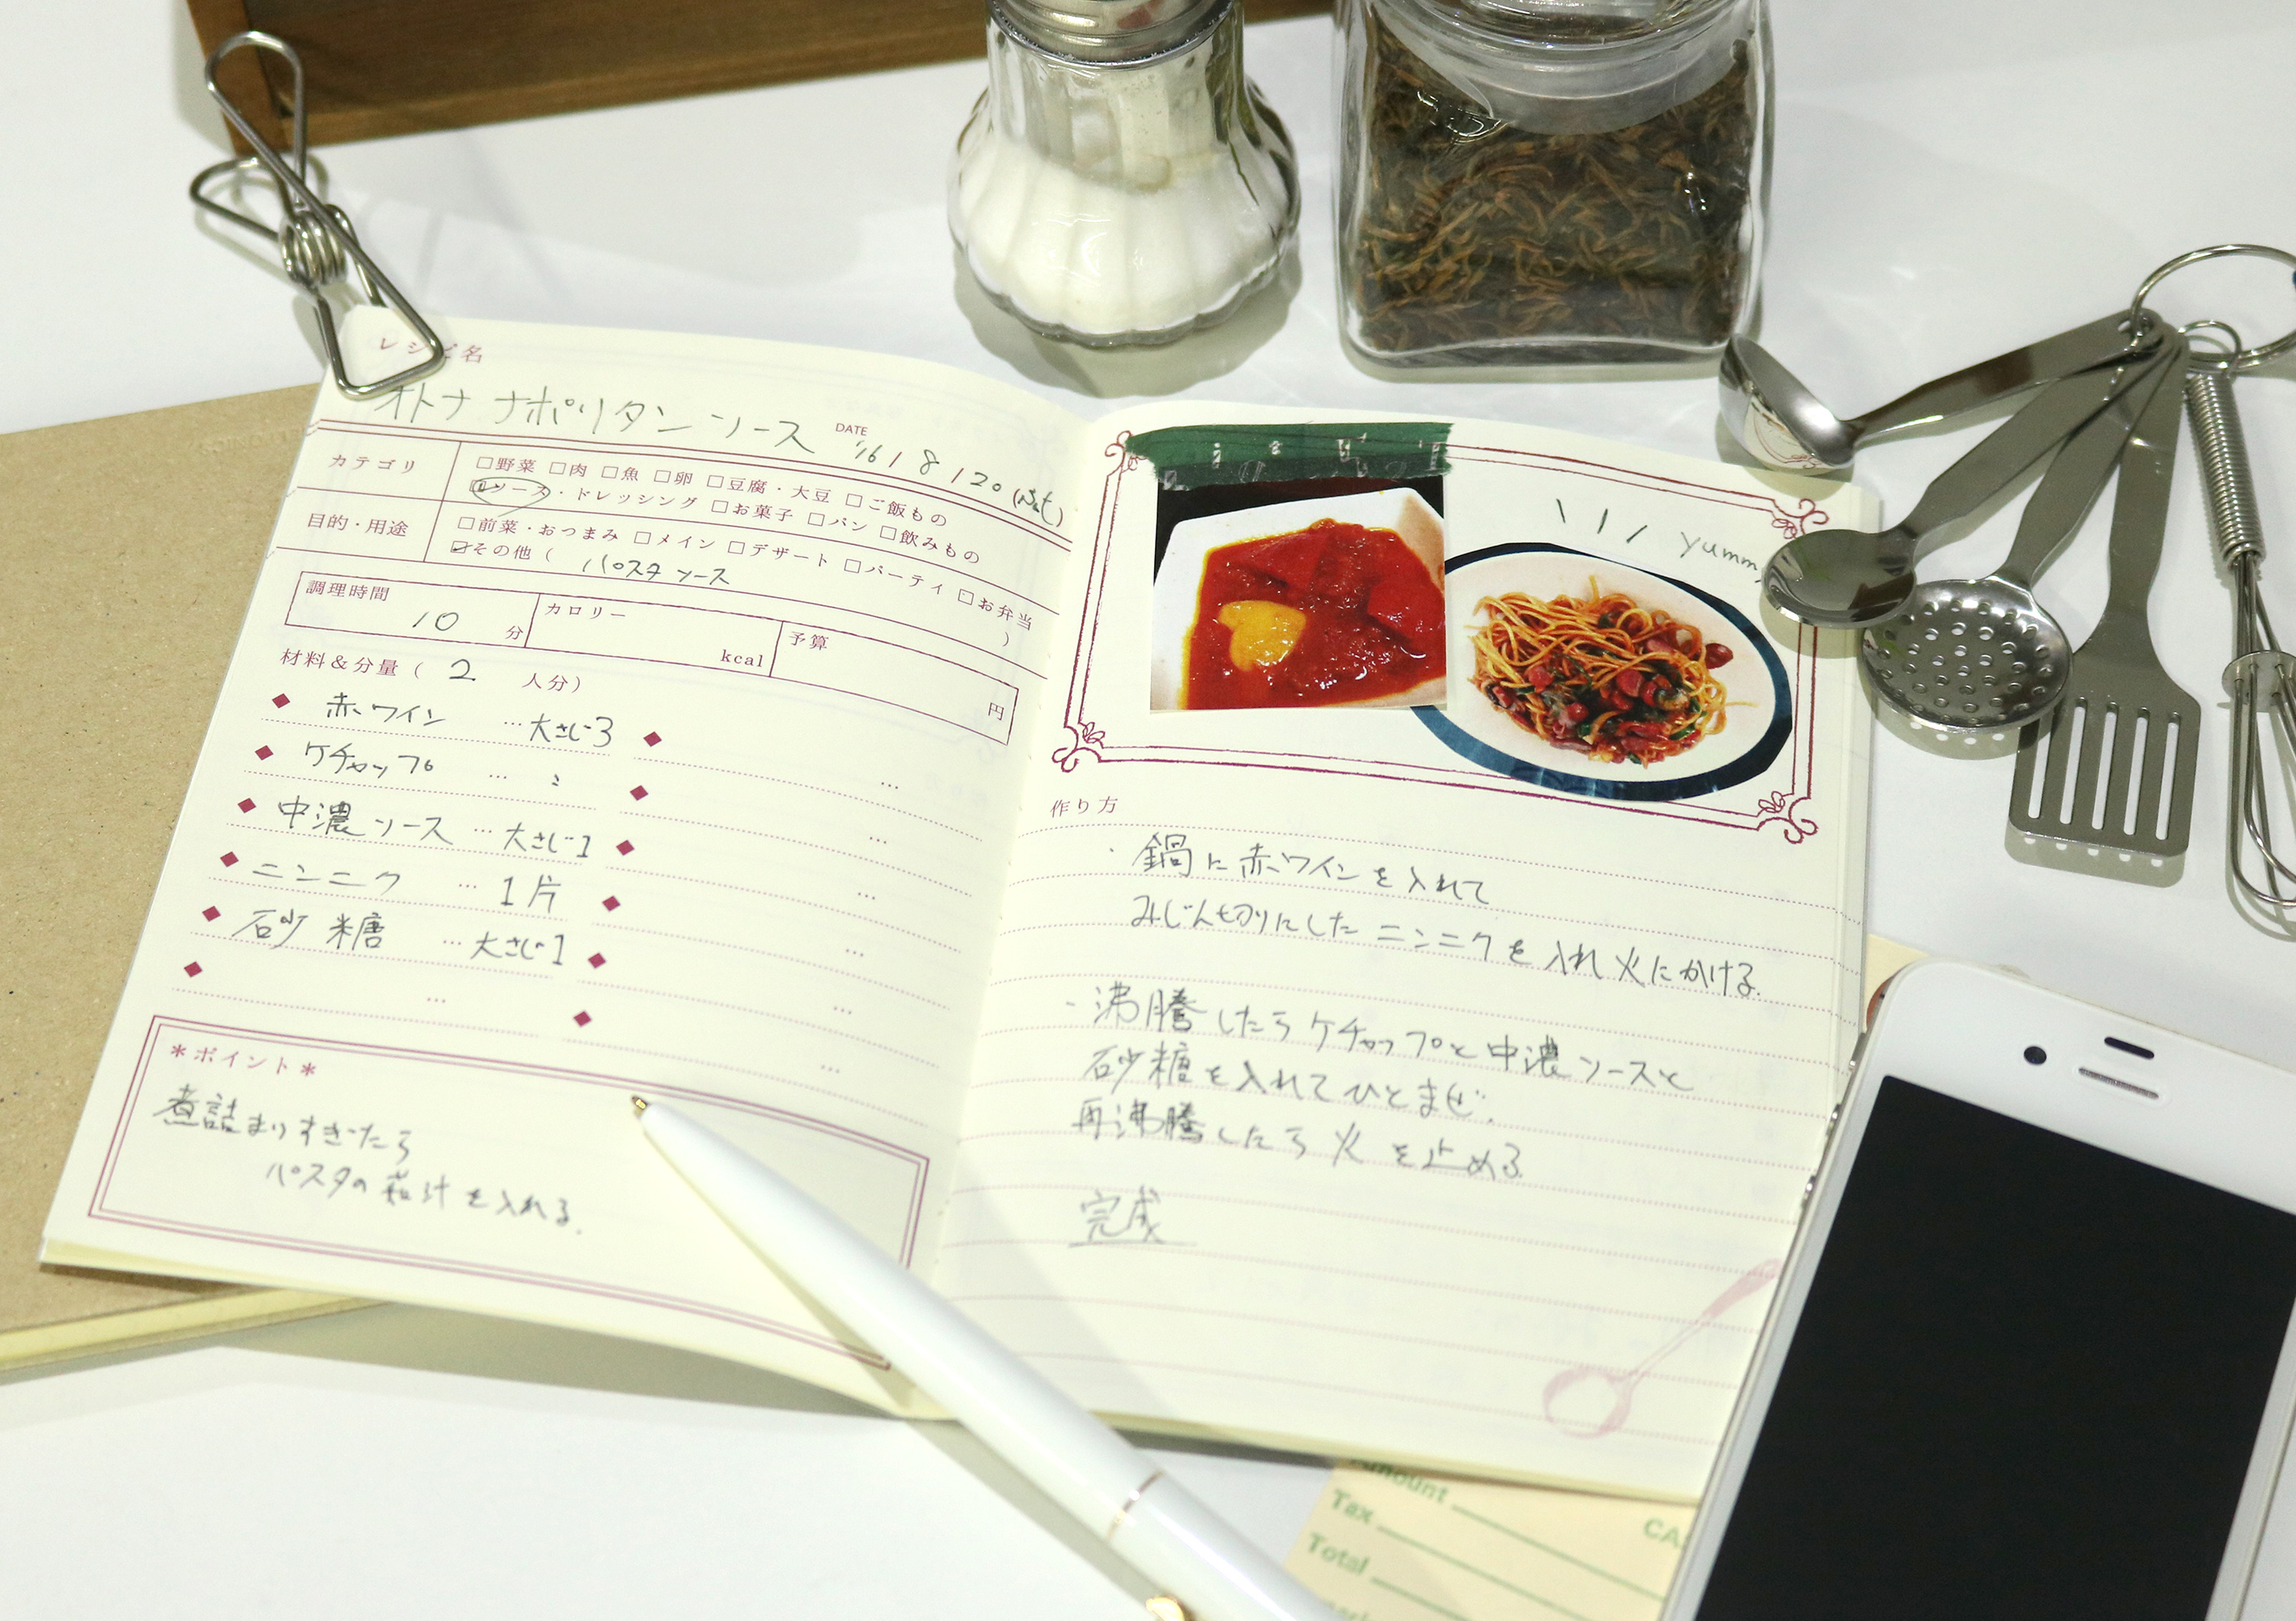 レシピ名
オトナ ナポリタン ソース
DATE '16 / 8 / 20 (Sat)
カテゴリ
□野菜 □肉 □魚 □卵 □豆腐・大豆 □ご飯もの
☑ソース・ドレッシング □お菓子 □パン □飲みもの
目的・用途
□前菜・おつまみ □メイン □デザート □パーティ □お弁当
☑その他 ( パスタソース )
調理時間 10 分
カロリー kcal
予算 円
材料&分量 ( 2 人分)
赤ワイン … 大さじ3
ケチャップ … 〃
中濃ソース … 大さじ1
ニンニク … 1片
砂糖 … 大さじ1
*ポイント*
煮詰まりすぎたら
パスタの茹汁を入れる.
yummy
作り方
・鍋に赤ワインを入れて
みじん切りにした ニンニクを入れ火にかける.
・沸騰したらケチャップと中濃ソースと
砂糖を入れてひとまぜ.
再沸騰したら火を止める.
完成
Amount
Tax
Total
CA